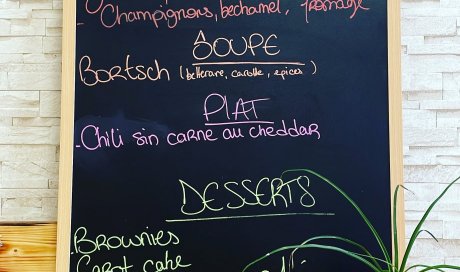 - Champignons, bechamel, fromage
SOUPE
Bortsch (betterave, carotte, epices)
PLAT
- Chili sin carne au cheddar
DESSERTS
- Brownies
Carot cake